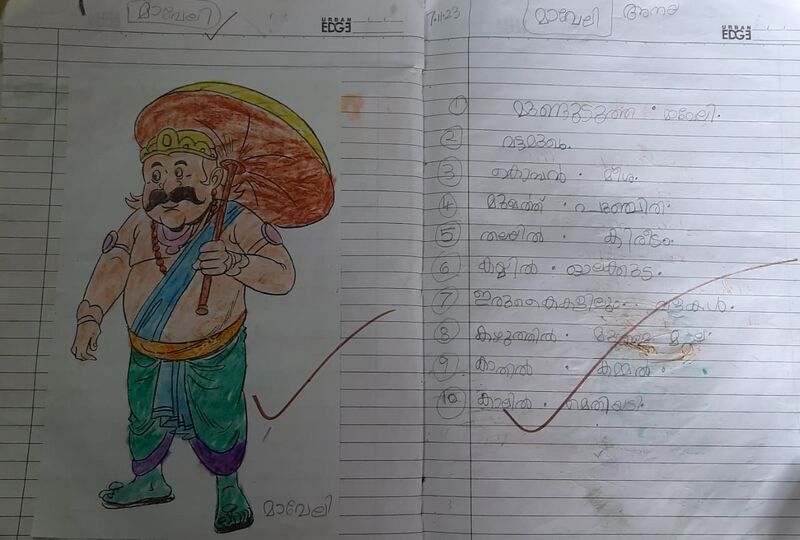 മാവേലി
URBAN
EDGE
മാവേലി
7.11.23
മാവേലി
URBAN
EDGE
① മുണ്ടുടുത്ത
② വട്ടമുഖം.
③ കൊമ്പൻ മീശ.
④
⑤ തലയിൽ കിരീടം
⑥ കയ്യിൽ ഓലക്കുട.
⑦ ഇരുകൈകളിലും വളകൾ.
⑧ കഴുത്തിൽ മാല
⑨ കാതിൽ കമ്മൽ
⑩ കാലിൽ മെതിയടി